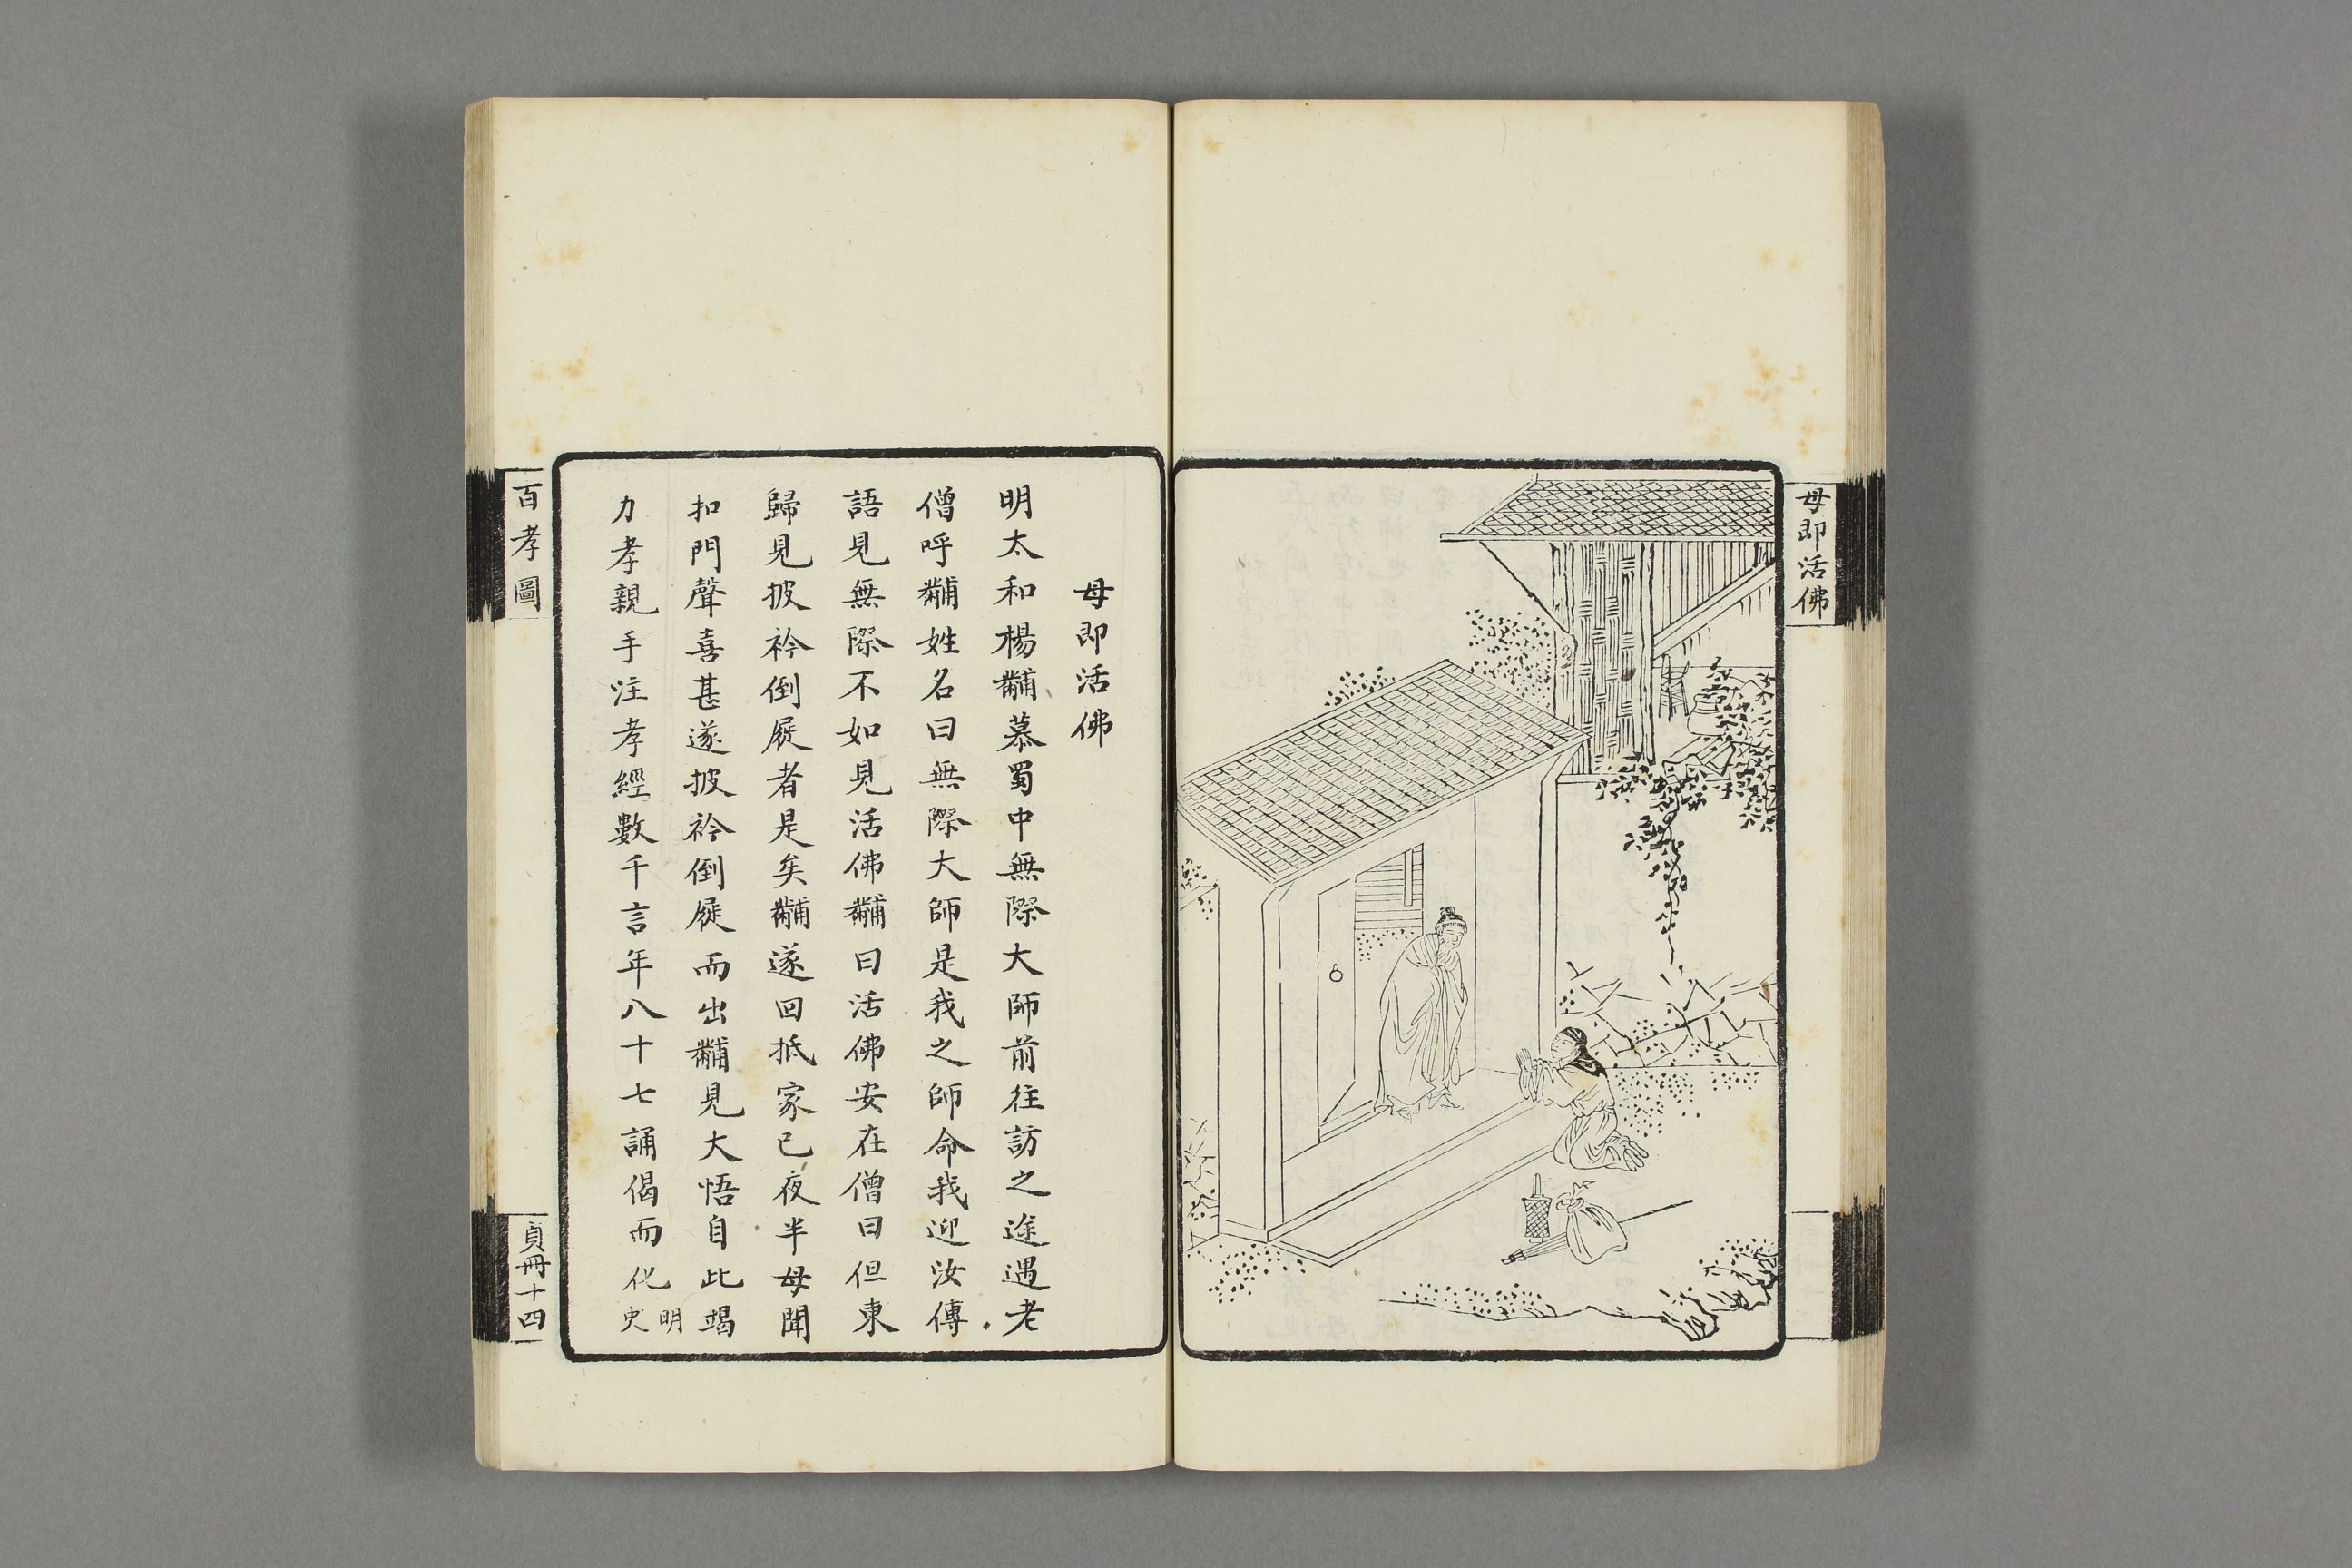 母即活佛
母即活佛
明太和楊黼慕蜀中無際大師前往訪之途遇老
僧呼黼姓名曰無際大師是我之師命我迎汝傳
語見無際不如見活佛黼曰活佛安在僧曰但東
歸見披衿倒屣者是矣黼遂回抵家已夜半母聞
扣門聲喜甚遂披衿倒屣而出黼見大悟自此竭
力孝親手注孝經數千言年八十七誦偈而化明
史
百孝圖
貞冊十四